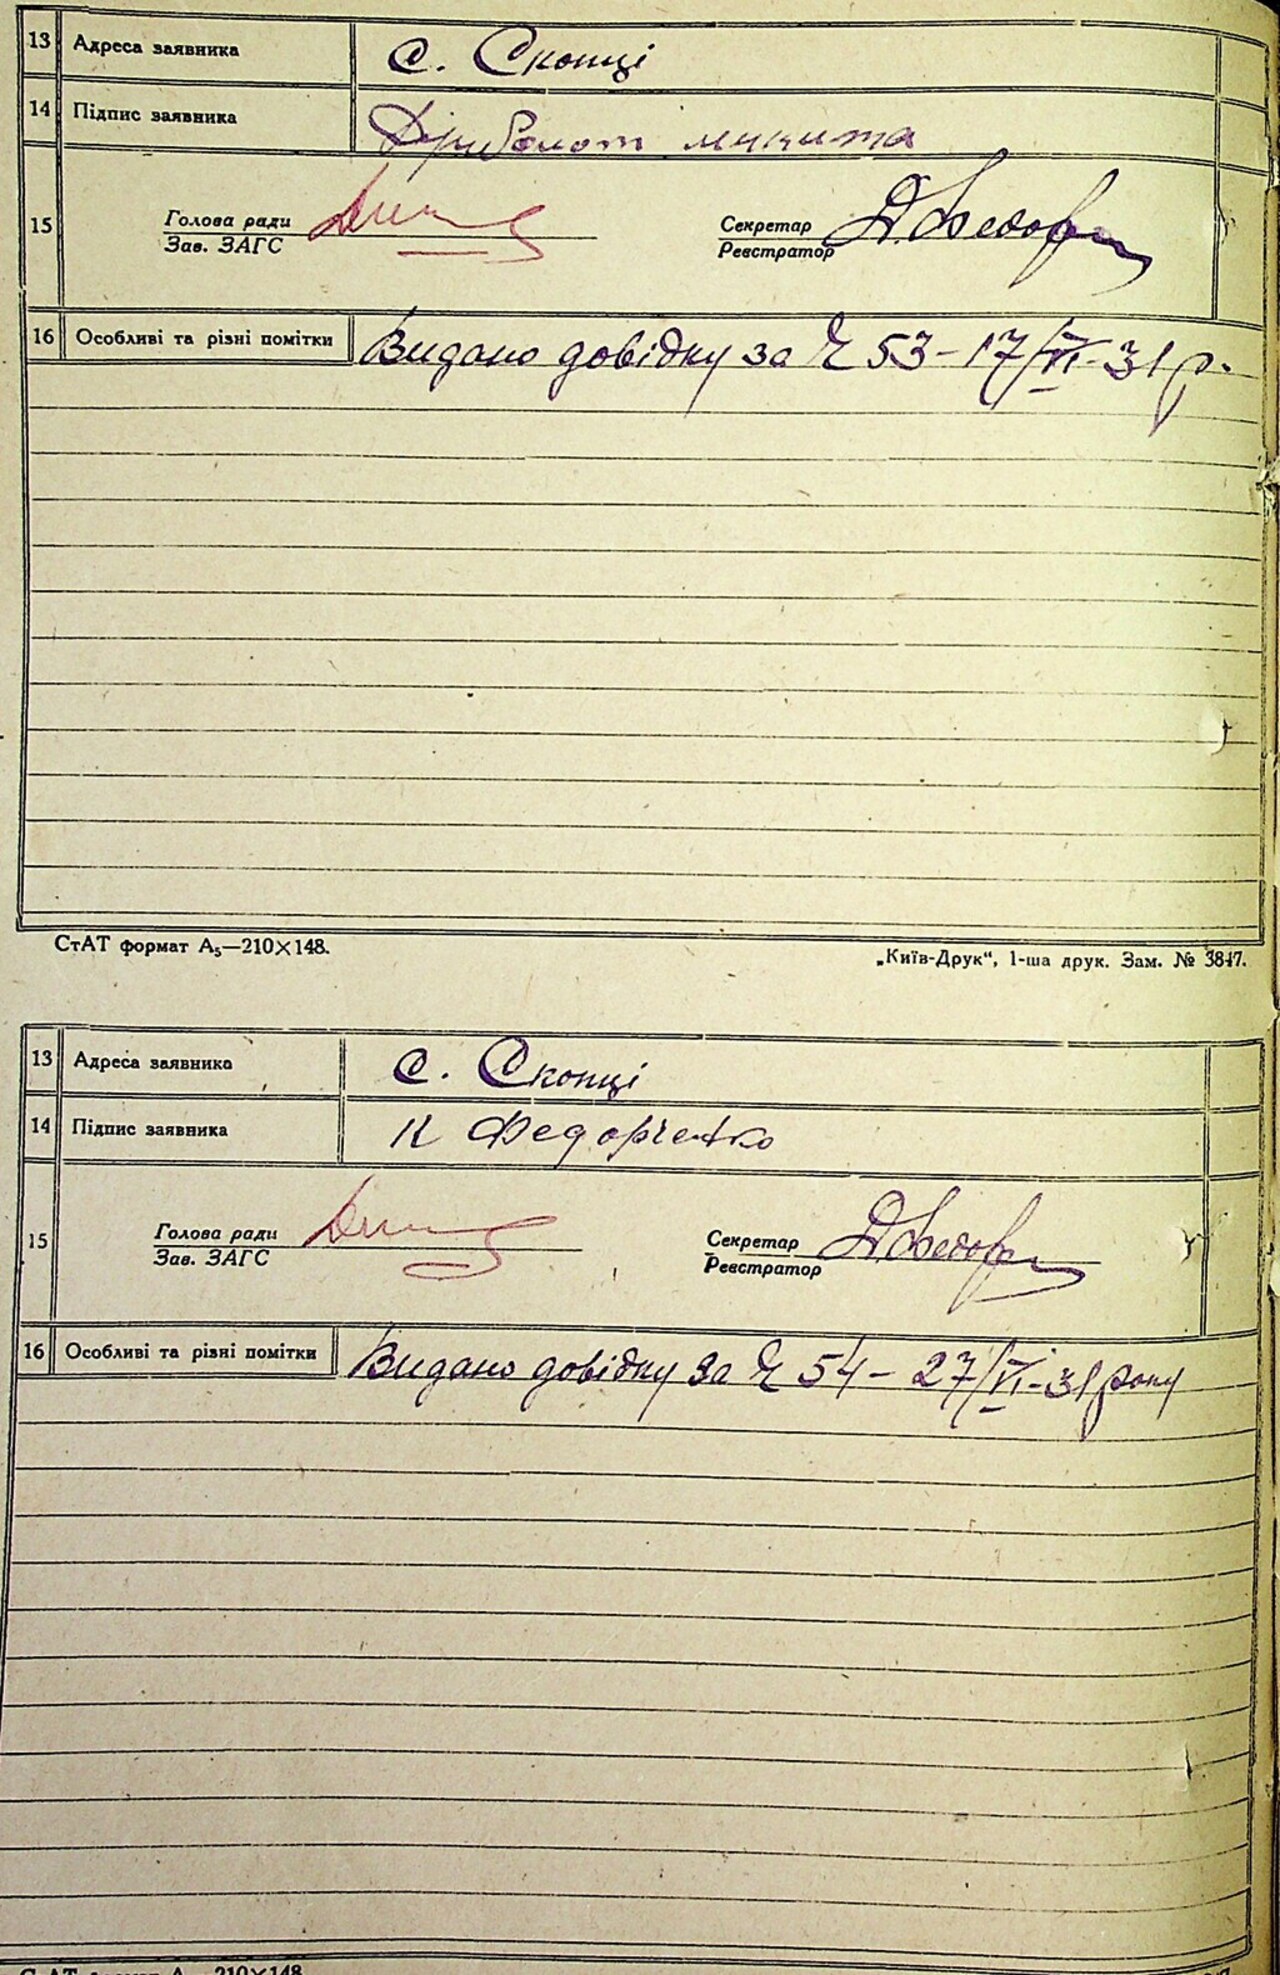 13 Адреса заявника с. Скопці
14 Підпис заявника Дриболот Микита
15 Голова ради Секретар
Зав. ЗАГС Реєстратор
16 Особливі та різні помітки Видано довідку за № 53 – 17/VI-31 р.
СтАТ формат А5—210×148. „Київ-Друк“, 1-ша друк. Зам. № 3847.
13 Адреса заявника с. Скопці
14 Підпис заявника К Федорченко
15 Голова ради Секретар
Зав. ЗАГС Реєстратор
16 Особливі та різні помітки Видано довідку за № 54 – 27/VI-31 року
210×148